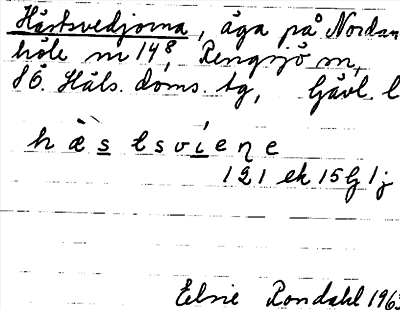 Hästsvedjorna, äga på Nordan
höle nr 14⁸, Rengsjö sn,
SÖ. Häls. doms. tg, Gävl. l
h æ s t s v i e ɳ e
121 ek 15 G 1j
Elsie Rondahl 1963